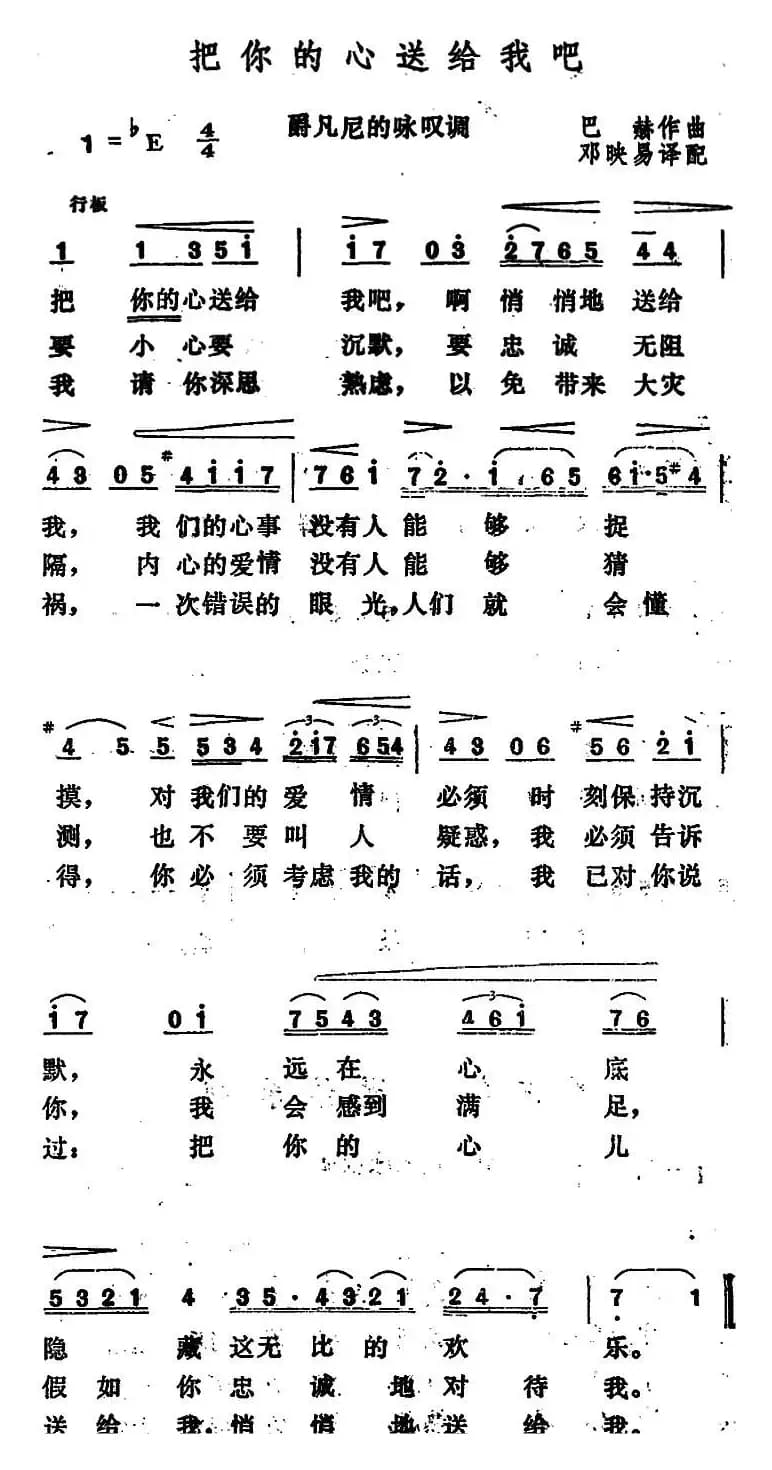 把你的心送给我吧
1=♭E 4/4 爵凡尼的咏叹调 巴赫作曲
邓映易译配
行板
1 1 3 5 i | i 7 0 3 2 7 6 5 4 4 |
把 你的心送给 我吧，啊悄悄地送给
要 小心要 沉默，要忠诚 无阻
我 请你深思 熟虑，以免带来大灾
4 3 0 5 #4 i i 7 | 7 6 i 7 2· i 6 5 6 i·5 #4
我，我们的心事 没有人能够捉
隔，内心的爱情 没有人能够猜
祸，一次错误的 眼光，人们就会懂
#4 5 5 5 3 4 2 i 7 6 5 4 | 4 3 0 6 #5 6 2 i |
摸，对我们的爱情 必须时刻保持沉
测，也不要叫人 疑惑，我必须告诉
得，你必须考虑我的 话，我已对你说
i 7 0 i 7 5 4 3 4 6 i 7 6 |
默，永远在心底
你，我会感到满足，
过：把你的心儿
5 3 2 1 4 3 5·4 3 2 1 2 4·7 | 7 1
隐藏这无比的欢乐。
假如你忠诚地对待我。
送给我，悄悄地送给我。